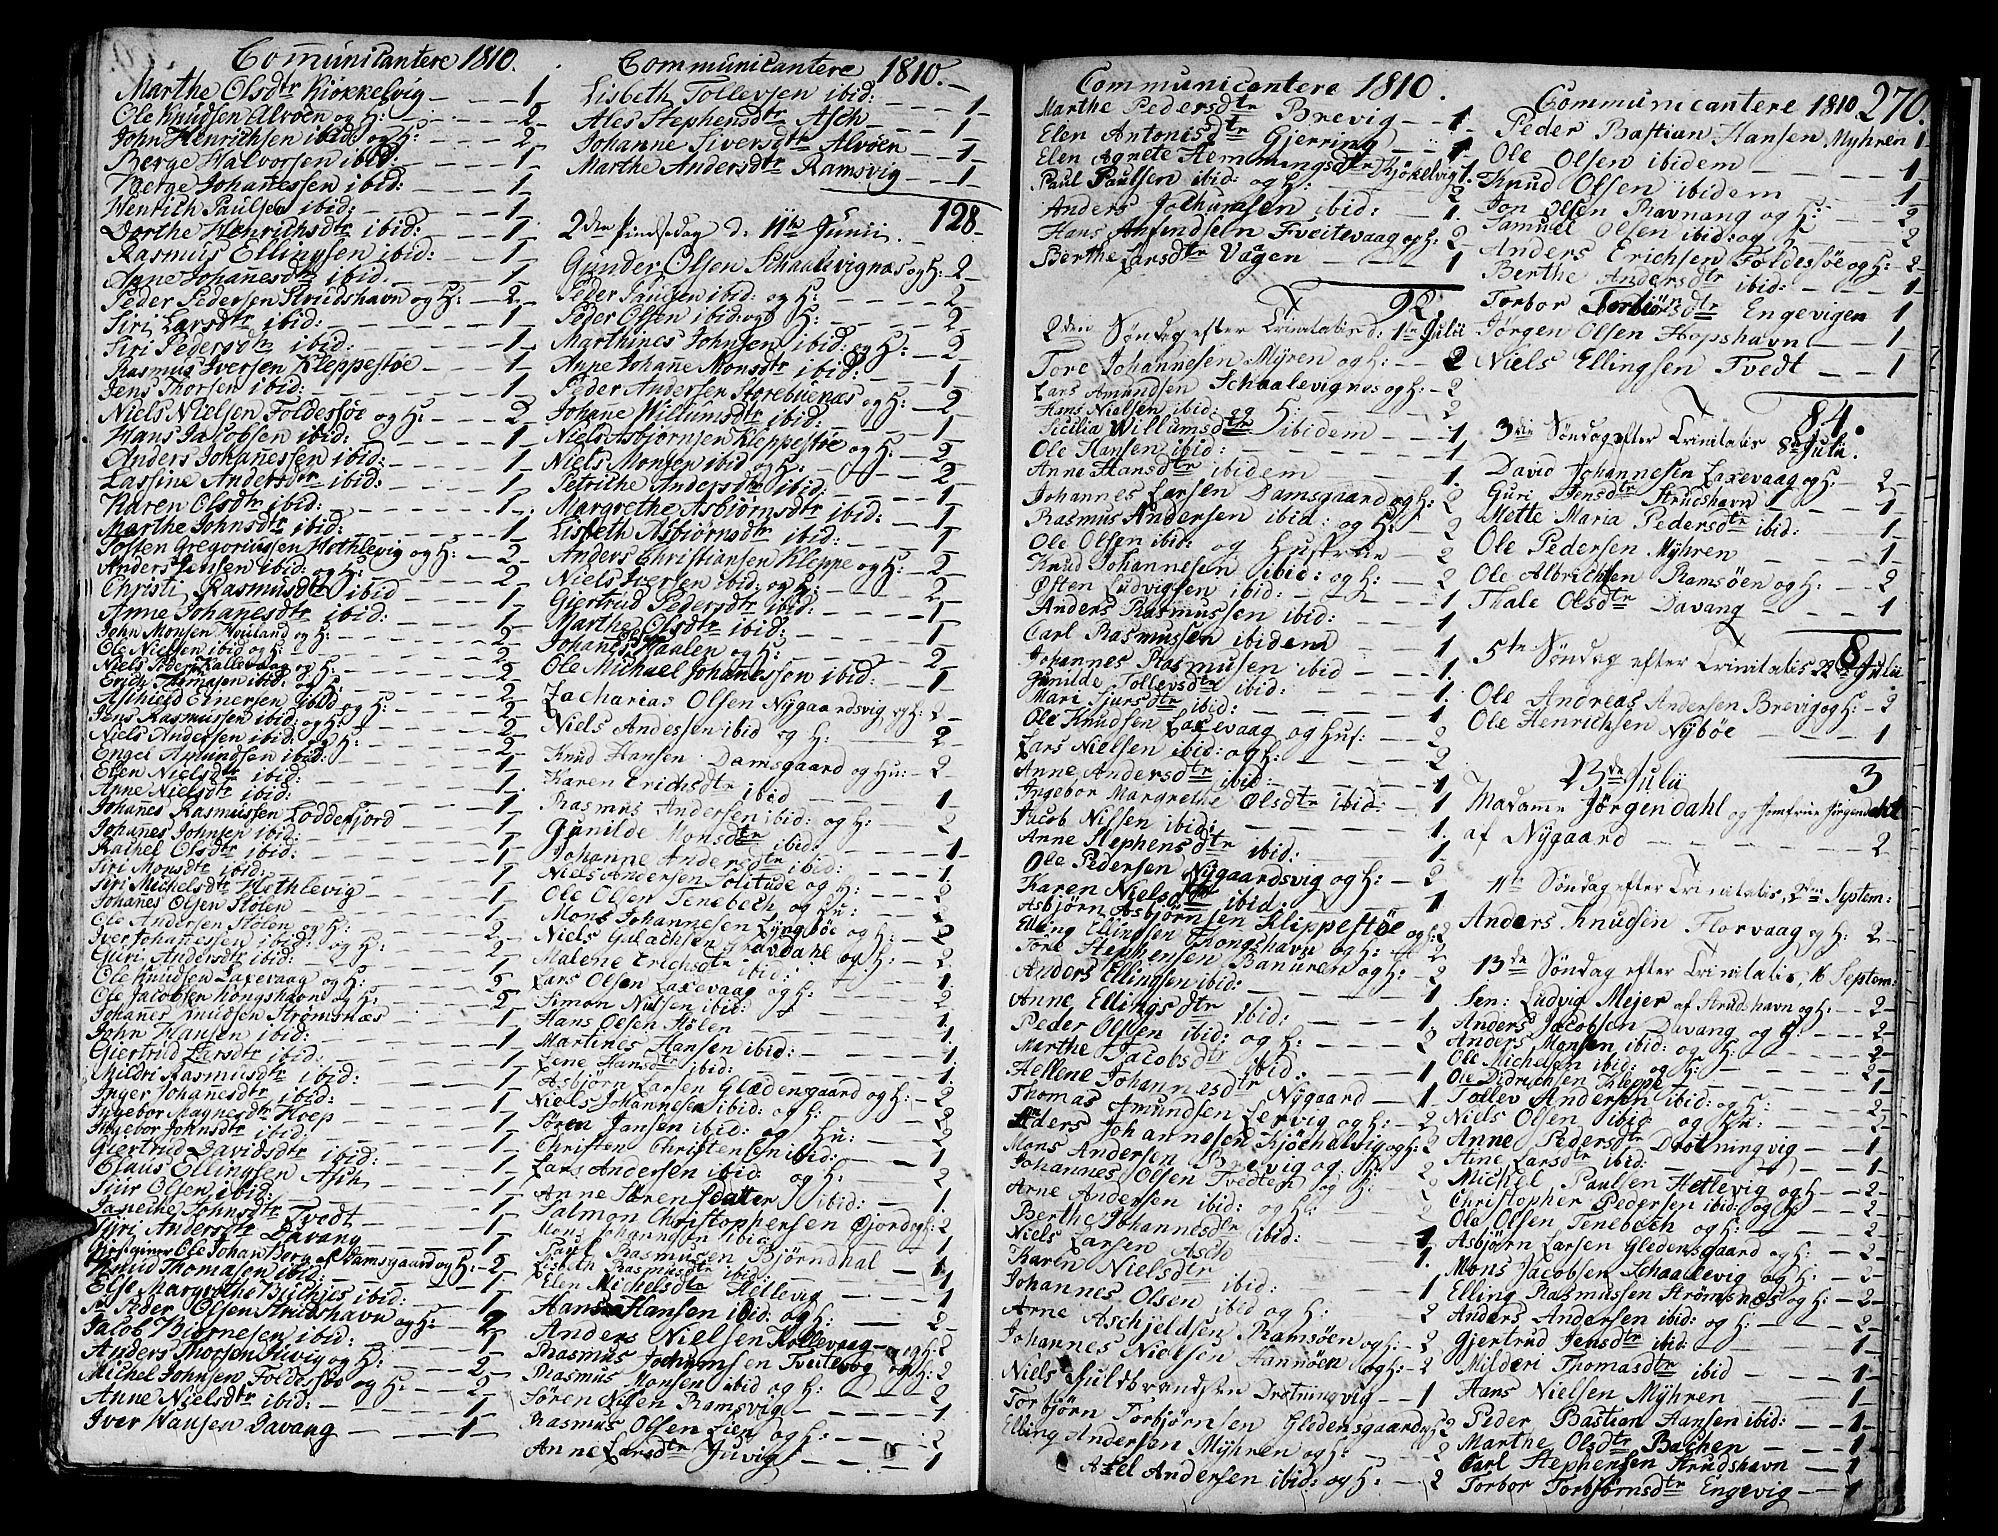 Communicantere 1810.
Marthe Olsdtr Kiøkkelvig — 1
Ole Knudsen Alvöen og H: — 2
John Henrichsen ibid og H: — 2
Berge Halvorsen ibid: — 1
Berge Johanessen ibid: — 1
Henrich Paulsen ibid: — 1
Dorthe Henrichsdtr ibid: — 1
Rasmus Ellingsen ibid: — 1
Anne Johanesdtr ibid. — 1
Peder Pedersen Strudshavn og H: — 2
Siri Larsdtr ibid: — 1
Siri Pedersdtr ibid: — 1
Rasmus Iversen Kleppestøe — 1
Jens Thorsen ibid: — 1
Niels Nielsen Foldessøe og H: — 2
Hans Jacobsen ibid: — 1
Anders Johanessen ibid: — 1
Lassine Andersdtr ibid: — 1
Karen Olsdtr ibid: — 1
Marthe Johnsdtr ibid: — 1
Tosten Gregoriussen Hethlevig og H: — 2
Anders Jansen ibid: og H: — 2
Christi Rasmusdtr ibid — 1
Anne Johanesdtr ibid: — 1
John Monsen Houland og H: — 2
Ole Nielsen ibid og H: — 2
Niels Peders: Kallevaag og H: — 2
Erich Thomasen ibid: og H: — 2
Aschield Einersen ibid — 2
Jens Rasmussen ibid: og H: — 2
Niels Andersen ibid: og H: — 2
Engel Amundsen ibid: — 1
Elen Nielsdtr ibid: — 1
Anne Nielsdtr ibid: — 1
Johanes Rasmussen Loddefjord — 1
Johanes Johnsen ibid: — 1
Rachel Olsdtr ibid: — 1
Siri Monsdtr ibid: — 1
Siri Michelsdtr Hethlevig — 1
Johanes Olsen Stølen — 1
Ole Andersen Stølen og H: — 2
Iver Johanessen ibid: og H: — 2
Guri Andersdtr ibid: — 1
Ole Knudsen Laxevaag og H: — 2
Ole Jacobsen Kongshavn og H: — 2
Johanes Knudsen Strømsnæs — 1
John Hansen ibid: — 1
Giertrud Larsdtr ibid: — 1
Mildri Rasmusdtr ibid: — 1
Inger Johanesdtr ibid: — 1
Ingebor Magnesdtr Hoep — 1
Ingebor Johnsdtr ibid: — 1
Giertrud Davidsdtr ibid: — 1
Claus Ellingsen Asch — 1
Siur Olsen ibid: — 1
Johnsdtr Tvedt — 1
Siri Andersdtr Davang — 1
Ole Johan Berg af Damsgaard og H: — 2
Knud Thomasen ibid: — 1
Else Margrethe ibid: — 1
Peder Olsen Strudshavn og H: — 2
Jacob Biørnesen ibid: — 1
Anders Morsen Juvig og H: — 2
Michel Johnsen Foldessøe og H: — 2
Anne Nielsdtr ibid: — 1
Iver Hansen Davang — 1
Communicantere 1810.
Lisbeth Tollevsen ibid: — 1
Ales Stephensdtr Asch — 1
Johanne Siversdtr Alvöen — 1
Marthe Andersdtr Ramsvig — 1
128
2den Pindsedag d: 11te Junii.
Gunder Olsen Schaalevignæs og H: 2
Peder Paulsen ibid: og H: — 2
Peder Olsen ibid: og H: — 2
Marthines Johnsen ibid: og H: — 2
Anne Johane Monsdtr ibid: — 1
Peder Andersen Storebuenæs og H: — 2
Johane Willumsdtr ibid: — 1
Niels Asbiørnsen Kleppestøe og H: — 2
Niels Monsen ibid og H: — 2
Petriche Andersdtr ibid: — 1
Margrethe Asbiørnsdtr ibid: — 1
Lisbeth Asbiørnsdtr ibid: — 1
Anders Christiansen Kleppe og H: — 2
Niels Iversen ibid: og H: — 2
Giertrud Pedersdtr ibid: — 1
Marthe Olsdtr ibid: — 1
Johanes Haalen og H: — 2
Ole Michael Johanessen ibid: — 1
Zacharias Olsen Nygaardsvig og H: 2
Niels Andessen ibid og H: — 2
Knud Hansen Damsgaard og Hu: — 2
Karen Erichsdtr ibid — 1
Rasmus Andersen ibid: og H: — 2
Gunilde Monsdtr ibid: — 1
Johanne Andersdtr ibid: — 1
Niels Andersen Solitude og H: — 2
Ole Olsen Tenebech og Hu: — 2
Mons Johannesen Lyngbøe og H: — 2
Niels Gulachsen Gravdahl og H: — 2
Malene Erichsdtr ibid: — 1
Lars Olsen Laxevaag og H: — 2
Simon Nilsen ibid: — 1
Hans Olsen Stølen — 1
Martines Hansen ibid: — 1
Lene Hansdtr ibid: — 1
Asbjörn Larsen Glædensgaard og H: — 2
Niels Johannesen ibid: og H: — 2
Søren Jansen ibid: og Hu: — 2
Christen Christensen ibid: — 1
Lars Andersen ibid: og H: — 2
Anne Sørensdatter ibid: — 1
Salmon Christophersen Gjord og H: 2
Mons Johannesen ibid: — 1
Rasmusen Bjørndhal — 1
Lisbeth Rasmusdtr ibid: — 1
Elen Michelsdtr Hetlevig — 1
Hans Hansen ibid: og H: — 2
Anders Nielsen Kallevaag og H: 2
Rasmus Jochumsen Tveitevog og H: 2
Rasmus Monsen ibid og H: 2
Søren Nilsen Ramsvig — 1
Rasmus Olsen Lien og H: — 2
Anne Larsdtr Juvig — 1
Communicantere 1810.
Marthe Pedersdtr Brevig — 1
Elen Antonisdtr Gjerring — 1
Elen Agnete Hemmingsdtr Kjøkelvig 1
Paul Paulsen ibid: og H: — 2
Anders Jochumsen ibid: — 1
Hans Amundsen Tveitevaag og H: 2
Berthe Larsdtr Vågen — 1
92
2den Søndag efter Trinitatis d: 1ste Julii
Tore Johannesen Myren og H: — 2
Lars Amundsen Schaalevignæs og H: — 2
Hans Nielsen ibid: og H: — 2
Sicilia Willumsdtr ibidem — 1
Ole Hansen ibid: — 1
Anne Hansdtr ibidem — 1
Johannes Larsen Damsgaard og H: 2
Rasmus Andersen ibid: og H: 2
Ole Olsen ibid: og Hustrue — 2
Knud Johannesen ibid: og H: — 2
Østen Ludvigsen ibid: — 1
Anders Rasmussen ibid: — 1
Carl Rasmussen ibidem — 1
Johannes Rasmusen ibid: — 1
Gunilde Tollevsdtr ibid: — 1
Mari Sjursdtr ibid: — 1
Ole Knudsen Laxevaag og Hus: — 2
Lars Nielsen ibid: og H: — 2
Anne Andersdtr ibid: — 1
Ingebor Margrethe Olsdtr ibid: — 1
Jacob Nilsen ibid: — 1
Anne Stephensdtr ibid: — 1
Ole Pedersen Nygaardsvig og H: — 2
Karen Nielsdtr ibid: — 1
Asbjørn Asbjørnsen Klippestøe og H: 2
Elling Ellingsen Kongshavn og H: — 2
Tore Stephensen Banuren og H: — 2
Anders Ellingsen ibid: — 1
Anne Ellingsdtr ibid: — 1
Peder Olsen ibid: og H: — 2
Marthe Jacobsdtr ibid: — 1
Hellene Johannesdtr Nygaard — 1
Thomas Amundsen Lervig og H: — 2
Anders Johannesen Kjøchelvig og H: 2
Mons Andersen Brevig og H: 2
Johannes Olsen Tvedten og H: 2
Arne Andersen ibid: og H: 2
Berthe Johannesdtr ibid: — 1
Niels Larsen Asch — 1
Karen Nielsdtr ibid: — 1
Johannes Olsen ibid og H: — 2
Arne Aschjeldsen Ramsøen og H: — 2
Johannes Nielsen Hannøen og H: — 2
Niels Huldbrandsen Drotningvig — 1
Torbjörn Torbjörnsen Gledensgaard og H: 2
Elling Andersen Myhren og H: — 2
Axel Andersen ibid: og H: — 2
Communicantere 1810 270.
Peder Bastian Hansen Myhren 1
Ole Olsen ibidem — 1
Knud Olsen ibidem — 1
Jon Olsen Ravnang og H: — 2
Samuel Olsen ibid: og H: — 2
Anders Erichsen Foldessøe og H: — 2
Berthe Andersdtr ibid: — 1
Torbor Torbiørsdtr Engevigen 1
Jørgen Olsen Hopshavn — 1
Niels Ellingsen Tvedt — 1
84.
3die Søndag efter Trinitatis 8de Julii.
David Johannesen Laxevaag og H: 2
Guri Jensdtr Strudshavn — 1
Mette Maria Pedersdtr ibid: — 1
Ole Pedersen Myhren — 1
Ole Albrichtsen Ramsøen og H: — 2
Thale Olsdtr Davang — 1
8
5te Søndag efter Trinitatis 22de Julii.
Ole Andreas Andersen Brevig og H: 2
Ole Henrichsen Nybøe — 1
3
23de Julii
Madame Jørgendahl og Jomfrue Jørgendahl
af Nygaard — 2
11te Søndag efter Trinitatis, 2den Septem:
Anders Knudsen Florvaag og H: — 2
13de Søndag efter Trinitatis, 16 Septem:
Sen: Ludvig Mejer af Strudshavn og H: — 2
Anders Jacobsen Davang og H: — 2
Anders Hansen ibid: og H: — 2
Ole Michelsen ibid: og H: — 2
Ole Didrichsen Kleppe — 1
Tollev Andersen ibid: og H: — 2
Niels Olsen ibid og Hu: — 2
Anne Pedersdtr Drotningvig — 1
Stine Larsdtr ibid: — 1
Michel Paulsen Hetlevig og H: — 2
Christopher Pedersen ibid: og H: — 2
Ole Olsen Tenebech og H: — 2
Asbjørn Larsen Gledensgaard og H: — 2
Mons Jacobsen Schaalevig og H: — 2
Elling Rasmussen Strömsnæs og H: — 2
Anders Andersen ibid: og H: — 2
Gjertrud Jensdtr ibid: — 1
Milderi Thomasdtr ibid — 1
Hans Nielsen Myhren — 1
Peder Bastian Hansen ibid: — 1
Marthe Olsdtr Bachen — 1
Carl Stephensen Strudshavn — 1
Torbor Torbjørnsdtr Engevig — 1